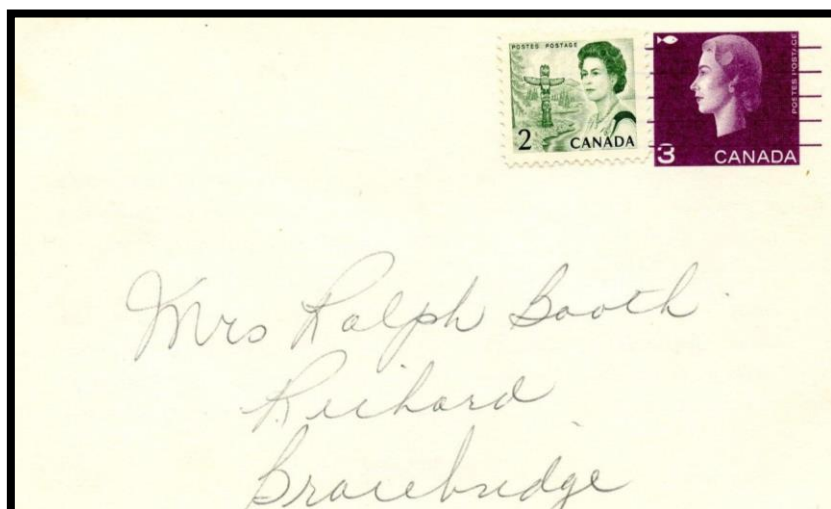 POSTES POSTAGE
2 CANADA
POSTES POSTAGE
3 CANADA
Mrs Ralph Booth
Richard
Bracebridge